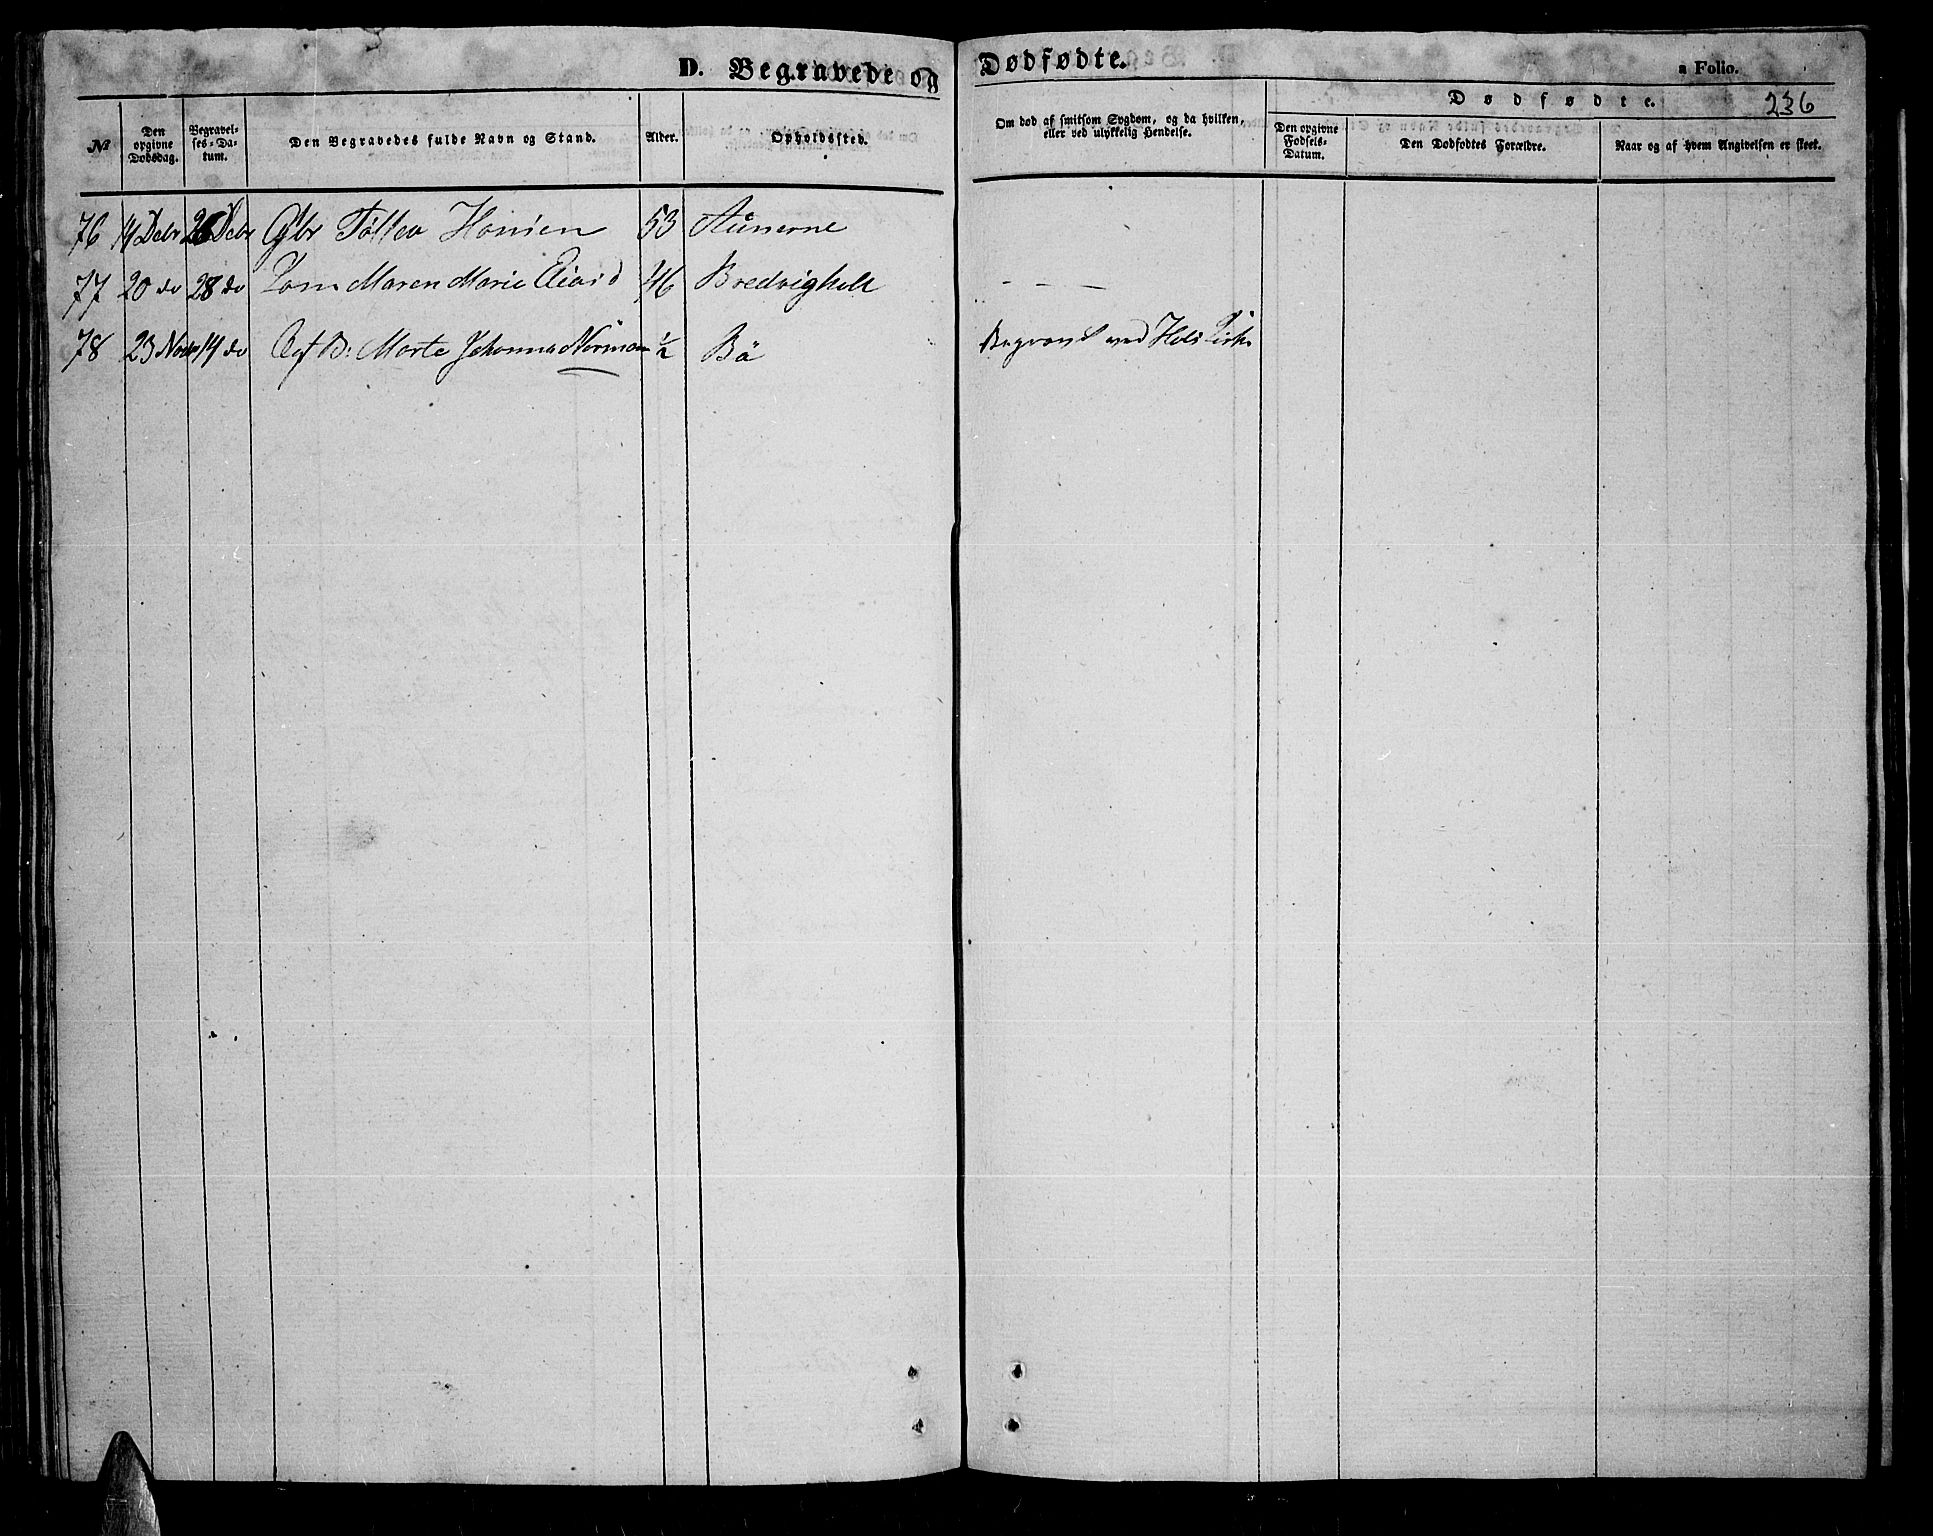 D. Begravede og Dødfødte.
a Folio.
236
№
Den opgivne Dødsdag.
Begravel-ses-Da-tum.
Den Begravedes fulde Navn og Stand.
Alder.
Opholdssted.
Om død af smitsom Sygdom, og da hvilken, eller ved ulykkelig Hendelse.
Dødfødte.
Den opgivne Fødsels-Datum.
Den Dødfødtes Forældre.
Naar og af hvem Angivelsen er skeet.
76 14 Decbr 26 Decbr Gbr Tollev Hansen 53
77 20 do 28 do Maren Marie 46 Bredvigholt
78 23 Novbr 14 do Marte Johanna ½ Bö Begravet ved Kirke